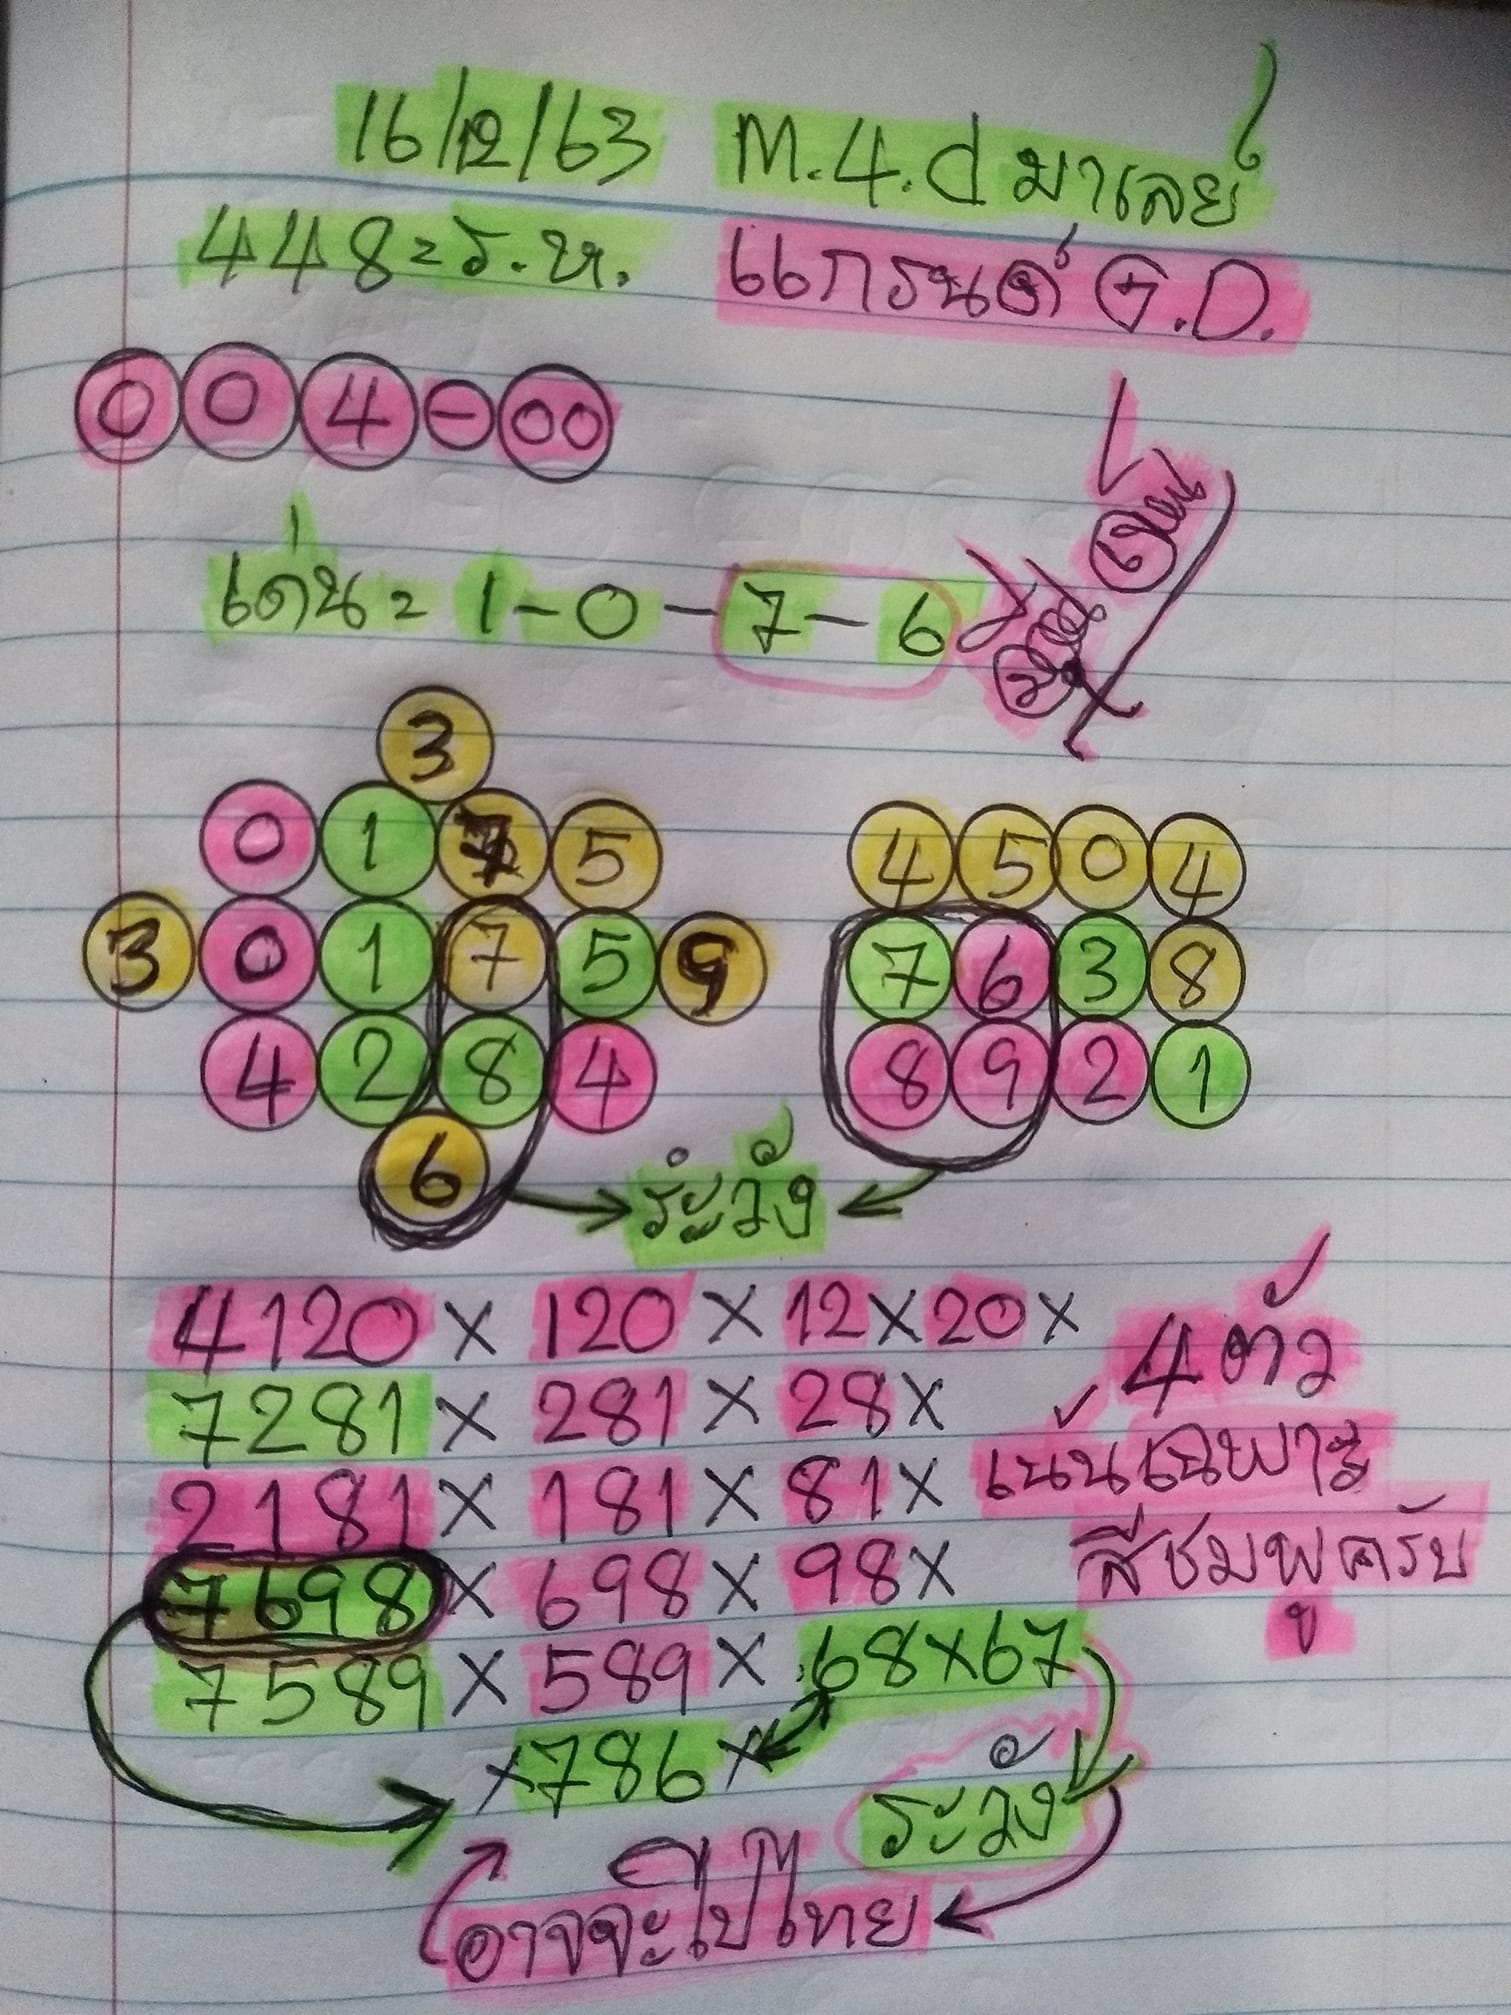 16/12/63 M.4.d มาเลย์
448=ร.ห. แกรนด์ G.D.
004-00
เด่น= 1-0-7-6
3
0 1 7 5
4 5 0 4
3 0 1 7 5 9
7 6 3 8
4 2 8 4
8 9 2 1
6
ระวัง
4120 × 120 × 12 × 20 ×
4 ตัว
7281 × 281 × 28 ×
เน้นเฉพาะ
2181 × 181 × 81 ×
สีชมพูครับ
7698 × 698 × 98 ×
7589 × 589 × 68 × 67
× 786 ×
ระวัง
อาจจะไปไทย